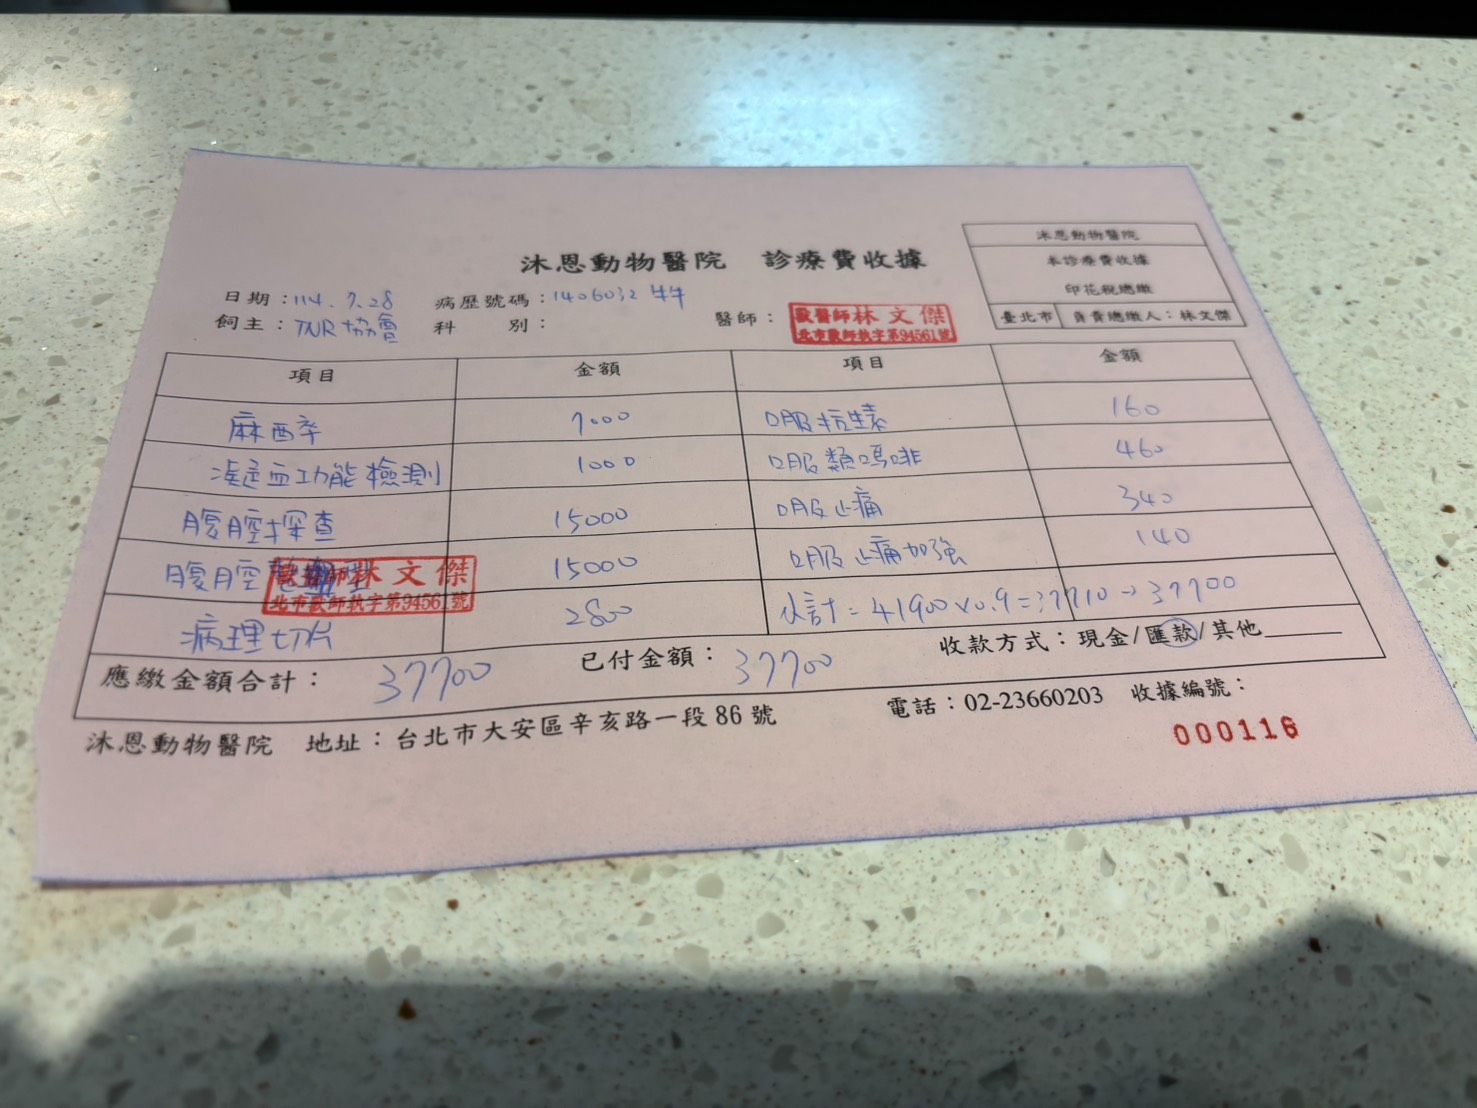 沐恩動物醫院
本診療費收據
印花稅總繳
臺北市 負責總繳人：林文傑
沐恩動物醫院 診療費收據
日期：114.7.28 病歷號碼：1406032 牛牛
飼主：TNR協會 科 別： 醫師： 獸醫師林文傑
北市獸師執字第94561號
項目 金額 項目 金額
麻酉卒 7000 口服抗生素 160
凝血功能檢測 1000 口服類嗎啡 460
腹腔探查 15000 口服止痛 340
腹腔 15000 口服止痛加強 140
獸醫師林文傑
北市獸師執字第94561號
病理切片 2800 小計=41900×0.9=37710→37700
應繳金額合計： 37700 已付金額： 37700 收款方式：現金/匯款/其他
沐恩動物醫院 地址：台北市大安區辛亥路一段86號 電話：02-23660203 收據編號：
000116